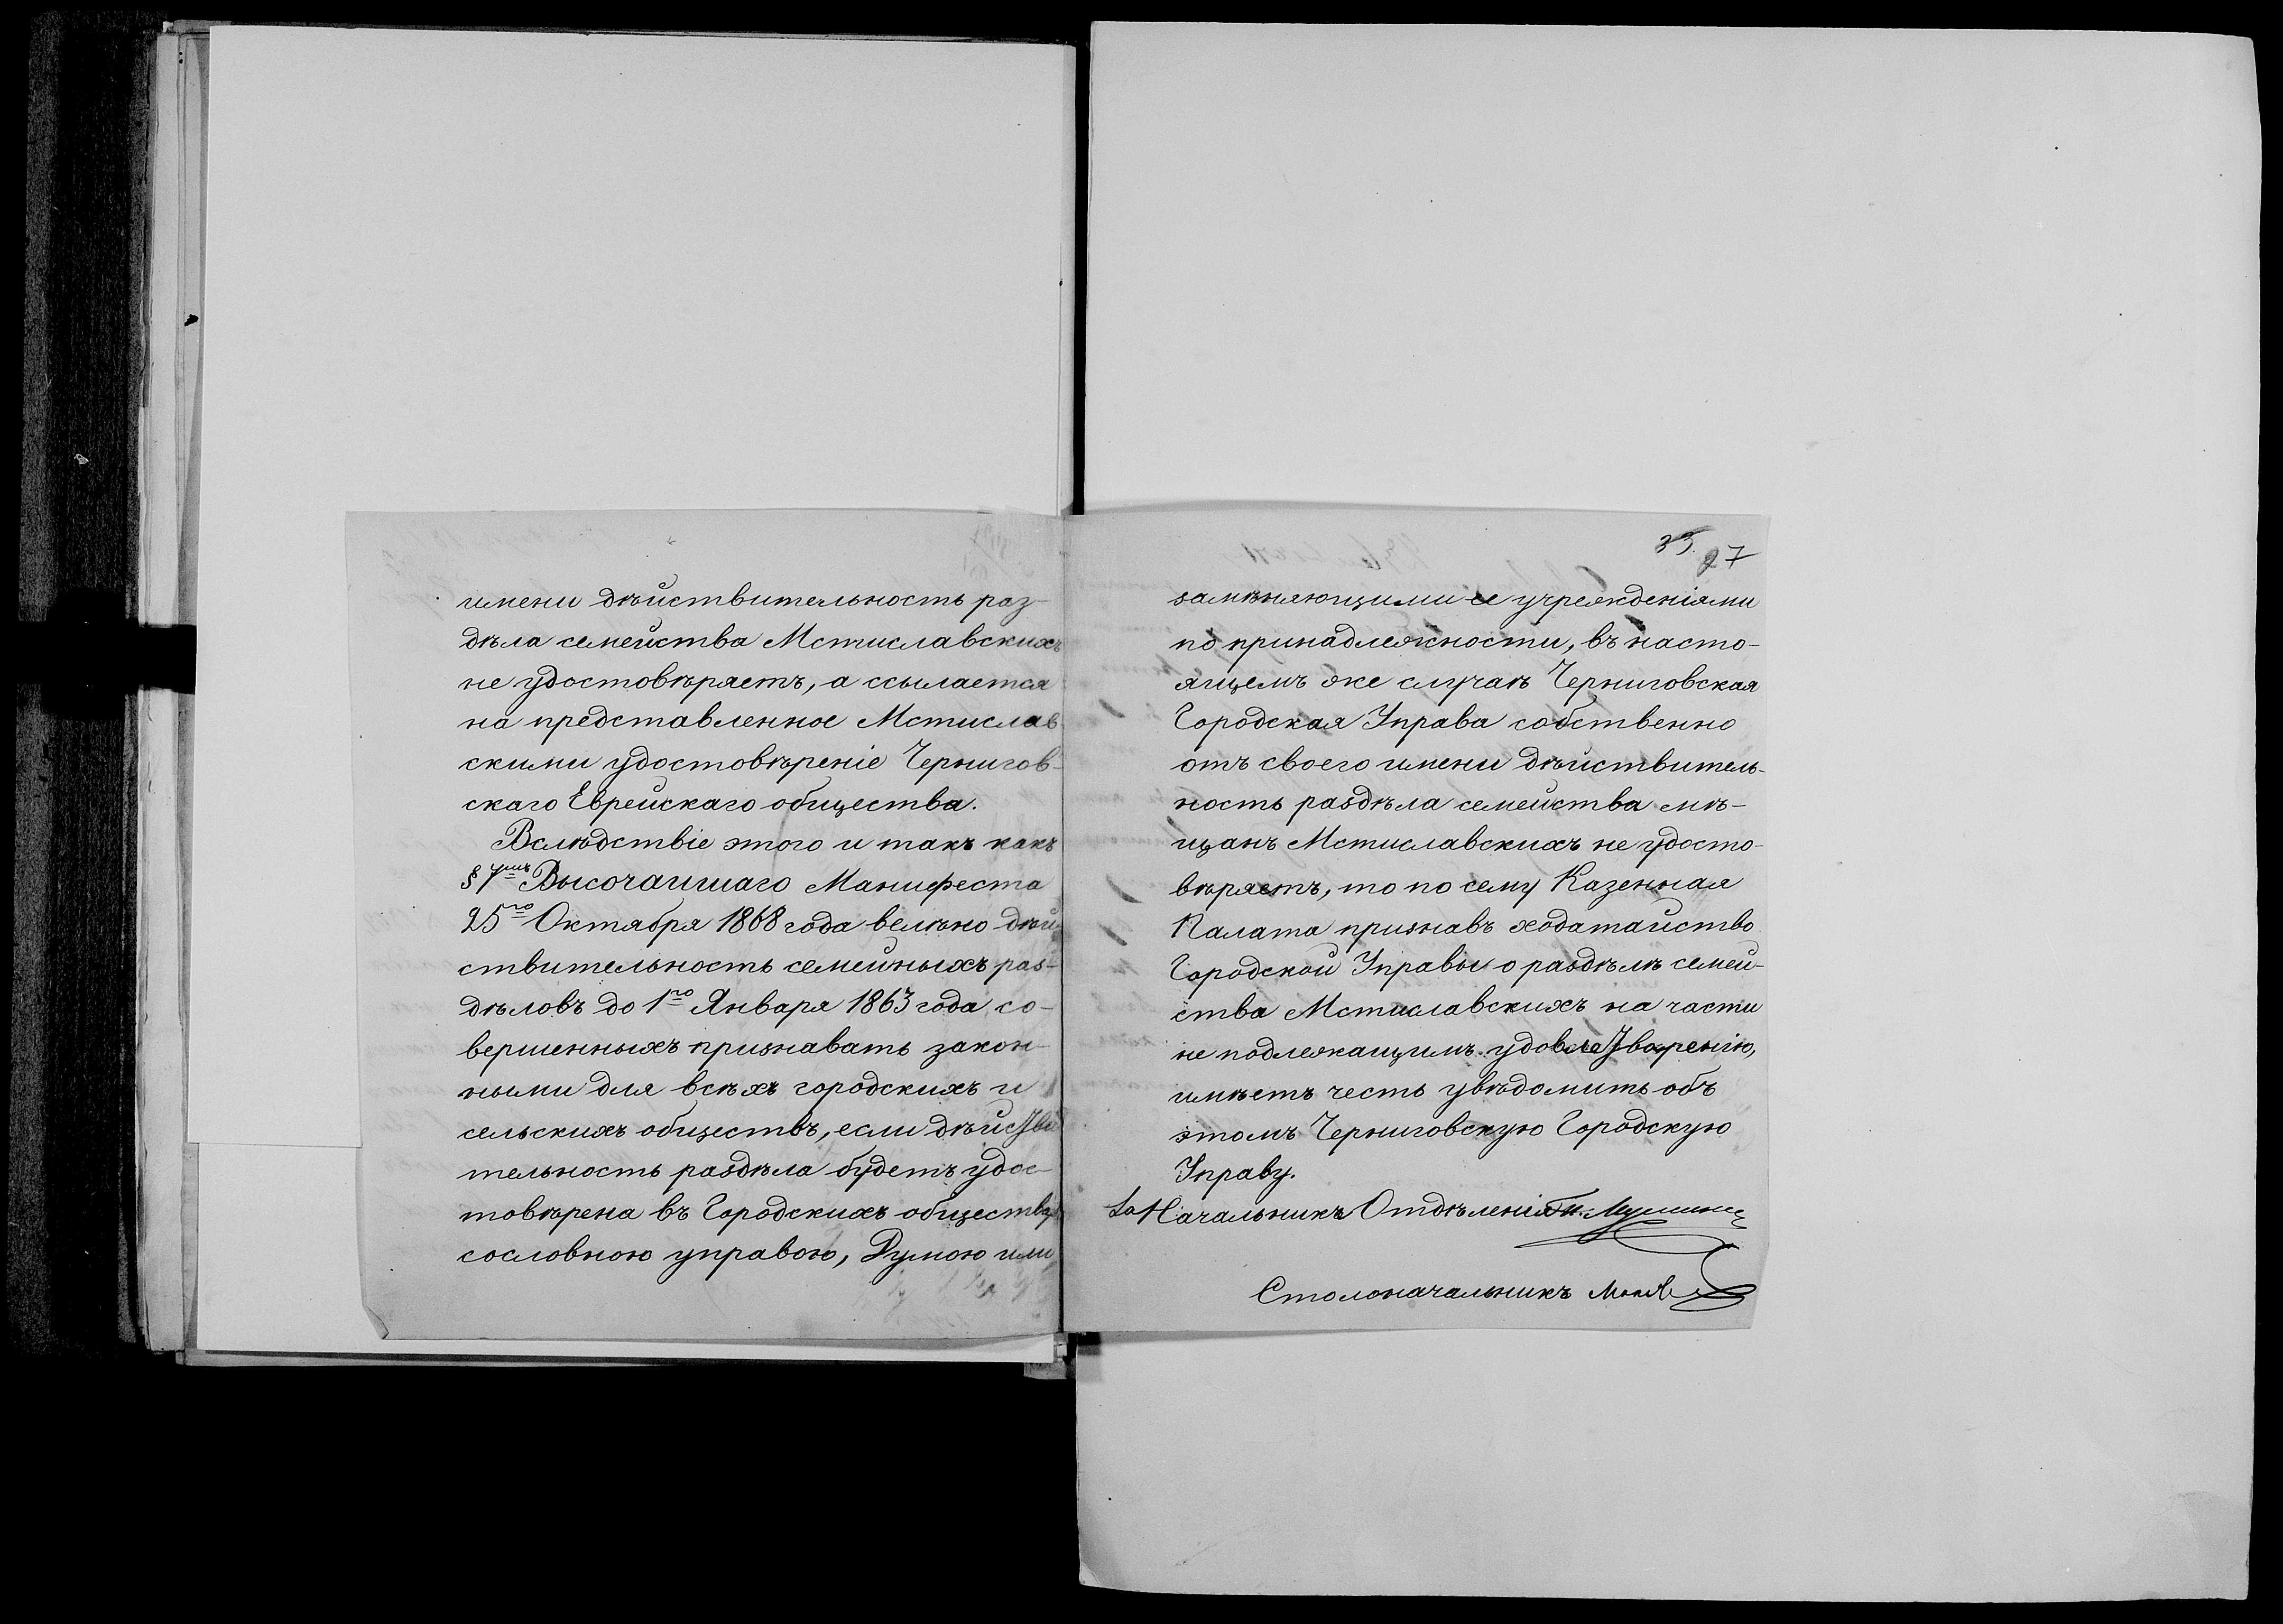 имени дѣйствительность раз-
дѣла семейства Мстиславскихъ
не удостовѣряетъ, а ссылается
на представленное Мстислав
скими удостовѣреніе Чернигов-
скаго Еврейскаго общества.
Вслѣдствіе этого и такъ какъ
§ 7мъ Высочайшаго Манифеста
25го Октября 1868 года велѣно дѣй
ствительность семейныхъ раз-
дѣловъ до 1го Января 1863 года со-
вершенныхъ признавать закон-
ными для всѣхъ городскихъ и
сельскихъ обществъ, если дѣйстви
тельность раздѣла будетъ удос-
товѣрена въ Городскихъ обществах
сословною управою, Думою или
35. 27
замѣняющими ее учрежденіями
по принадлежности, въ насто-
ящемъ же случаѣ Черниговская
Городская Управа собственно
отъ своего имени дѣйствитель-
ность раздѣла семейства мѣ-
щанъ Мстиславскихъ не удосто-
вѣряетъ, то по сему Казенная
Палата признавъ ходатайство
Городской Управы о раздѣлѣ семей-
ства Мстиславскихъ на части
не подлежащимъ удовлетворенію,
имѣетъ честь увѣдомить объ
этомъ Черниговскую Городскую
Управу.
За Начальникъ Отдѣленія
Столоначальникъ